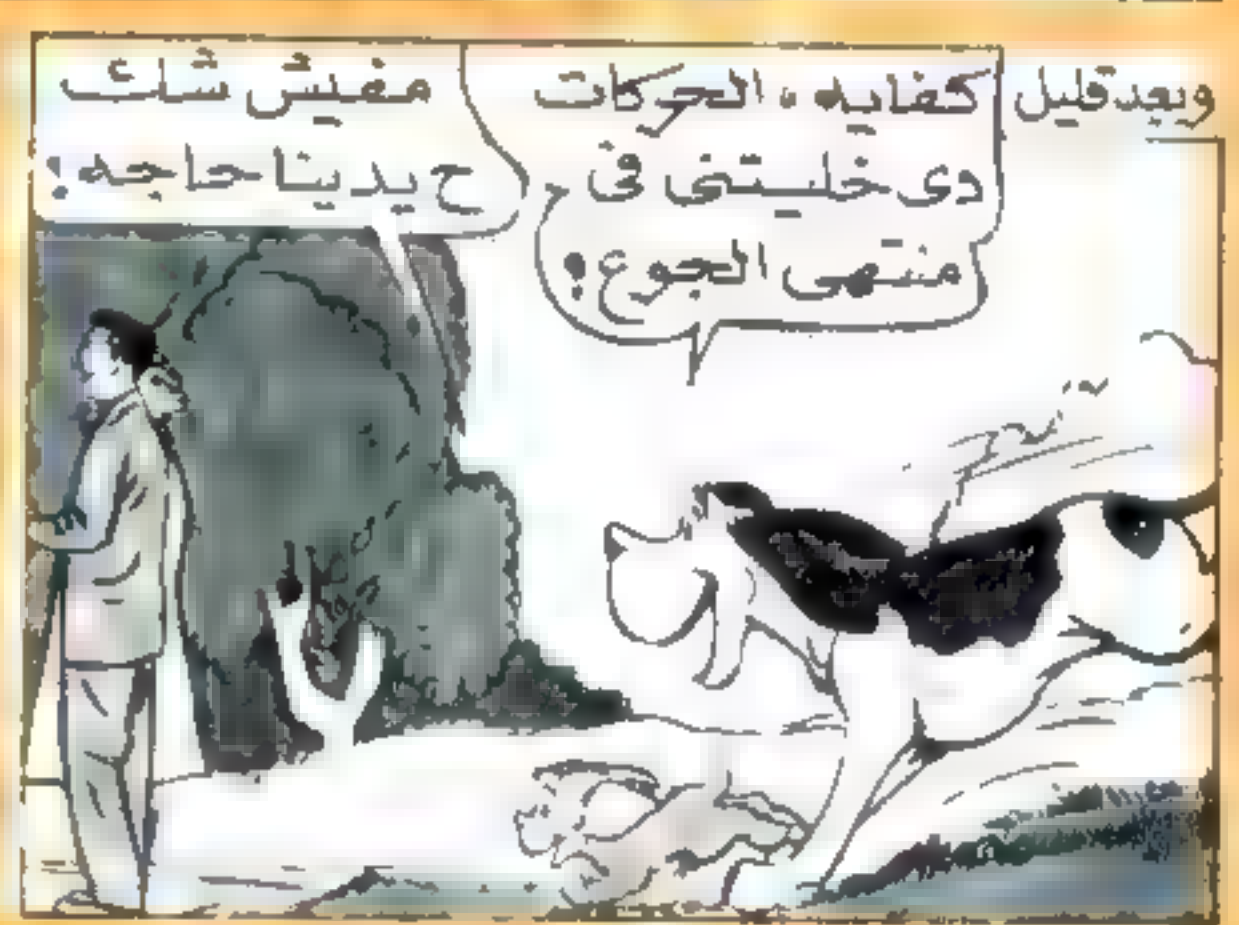 وبعد قليل
كفايه، الحركات
دى خليتنى فى
منتهى الجوع!
مفيش شك
ح يدينا حاجه!